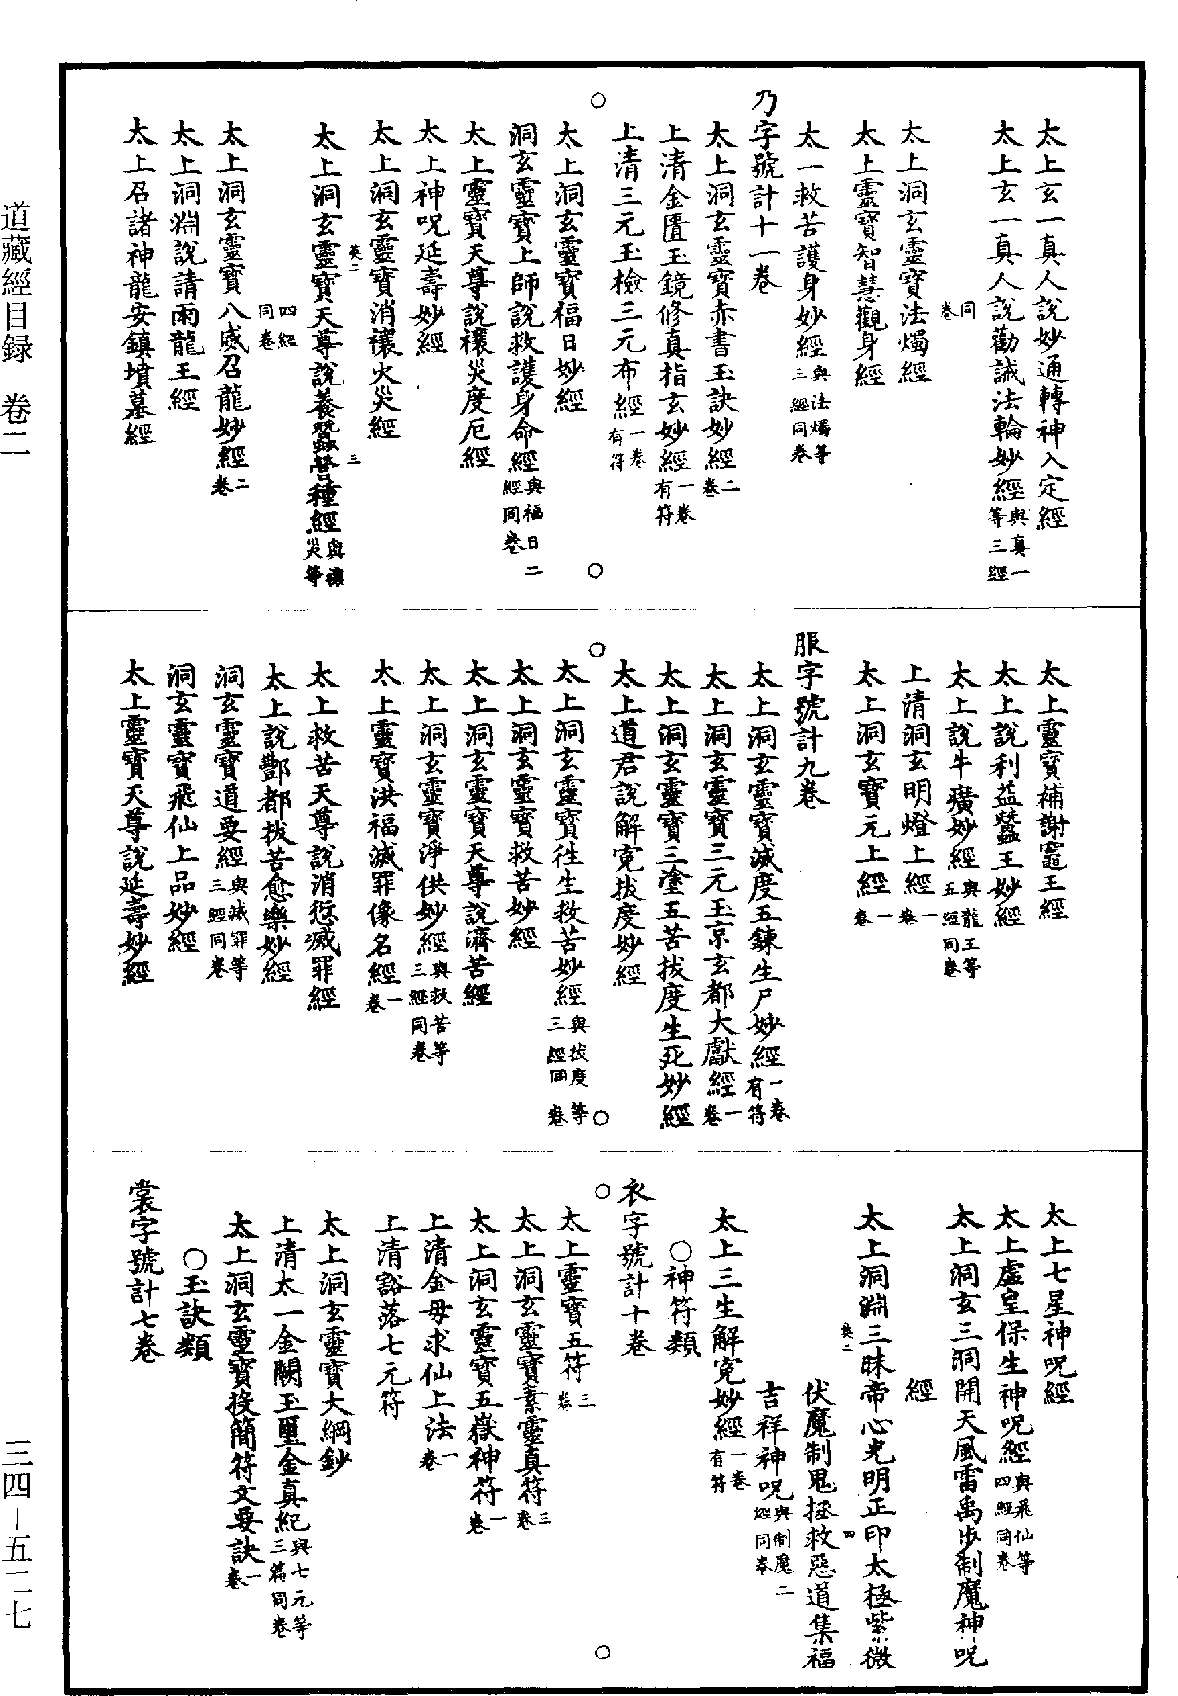 太上玄一真人說妙通轉神入定經
太上玄一真人說勸誡法輪妙經與真一等三經
同卷
太上洞玄靈寶法燭經
太上靈寶智慧觀身經
太一救苦護身妙經與法燭等三經同卷
乃字號計十一卷
太上洞玄靈寶赤書玉訣妙經二卷
上清金匱玉鏡修真指玄妙經一卷有符
上清三元玉檢三元布經一卷有符
太上洞玄靈寶福日妙經
洞玄靈寶上師說救護身命經與福日二經同卷
太上靈寶天尊說禳災度厄經
太上神呪延壽妙經
太上洞玄靈寶消禳火災經
太上洞玄靈寶天尊說養蠶營種經與禳災等
四經同卷
太上洞玄靈寶八威召龍妙經二卷
太上洞淵說請雨龍王經
太上召諸神龍安鎮墳墓經
太上靈寶補謝竈王經
太上說利益蠶王妙經
太上說牛癀妙經與龍王等五經同卷
上清洞玄明燈上經一卷
太上洞玄寶元上經一卷
服字號計九卷
太上洞玄靈寶滅度五鍊生尸妙經一卷有符
太上洞玄靈寶三元玉京玄都大獻經一卷
太上洞玄靈寶三塗五苦拔度生死妙經
太上道君說解冤拔度妙經
太上洞玄靈寶往生救苦妙經與拔度等三經同卷
太上洞玄靈寶救苦妙經
太上洞玄靈寶天尊說濟苦經
太上洞玄靈寶淨供妙經與救苦等三經同卷
太上靈寶洪福滅罪像名經一卷
太上救苦天尊說消愆滅罪經
太上說酆都拔苦愈樂妙經
洞玄靈寶道要經與滅罪等三經同卷
洞玄靈寶飛仙上品妙經
太上靈寶天尊說延壽妙經
太上七星神呪經
太上虛皇保生神呪經與飛仙等四經同卷
太上洞玄三洞開天風雷禹步制魔神呪
經
太上洞淵三昧帝心光明正印太極紫微
伏魔制鬼拯救惡道集福
吉祥神呪與制魔二經同卷
太上三生解冤妙經一卷有符
○神符類
衣字號計十卷
太上靈寶五符三卷
太上洞玄靈寶素靈真符三卷
太上洞玄靈寶五嶽神符一卷
上清金母求仙上法一卷
上清豁落七元符
太上洞玄靈寶大綱鈔
上清太一金闕玉璽金真紀與七元等三篇同卷
太上洞玄靈寶投簡符文要訣一卷
○玉訣類
裳字號計七卷
道藏經目録　卷二
三四—五二七